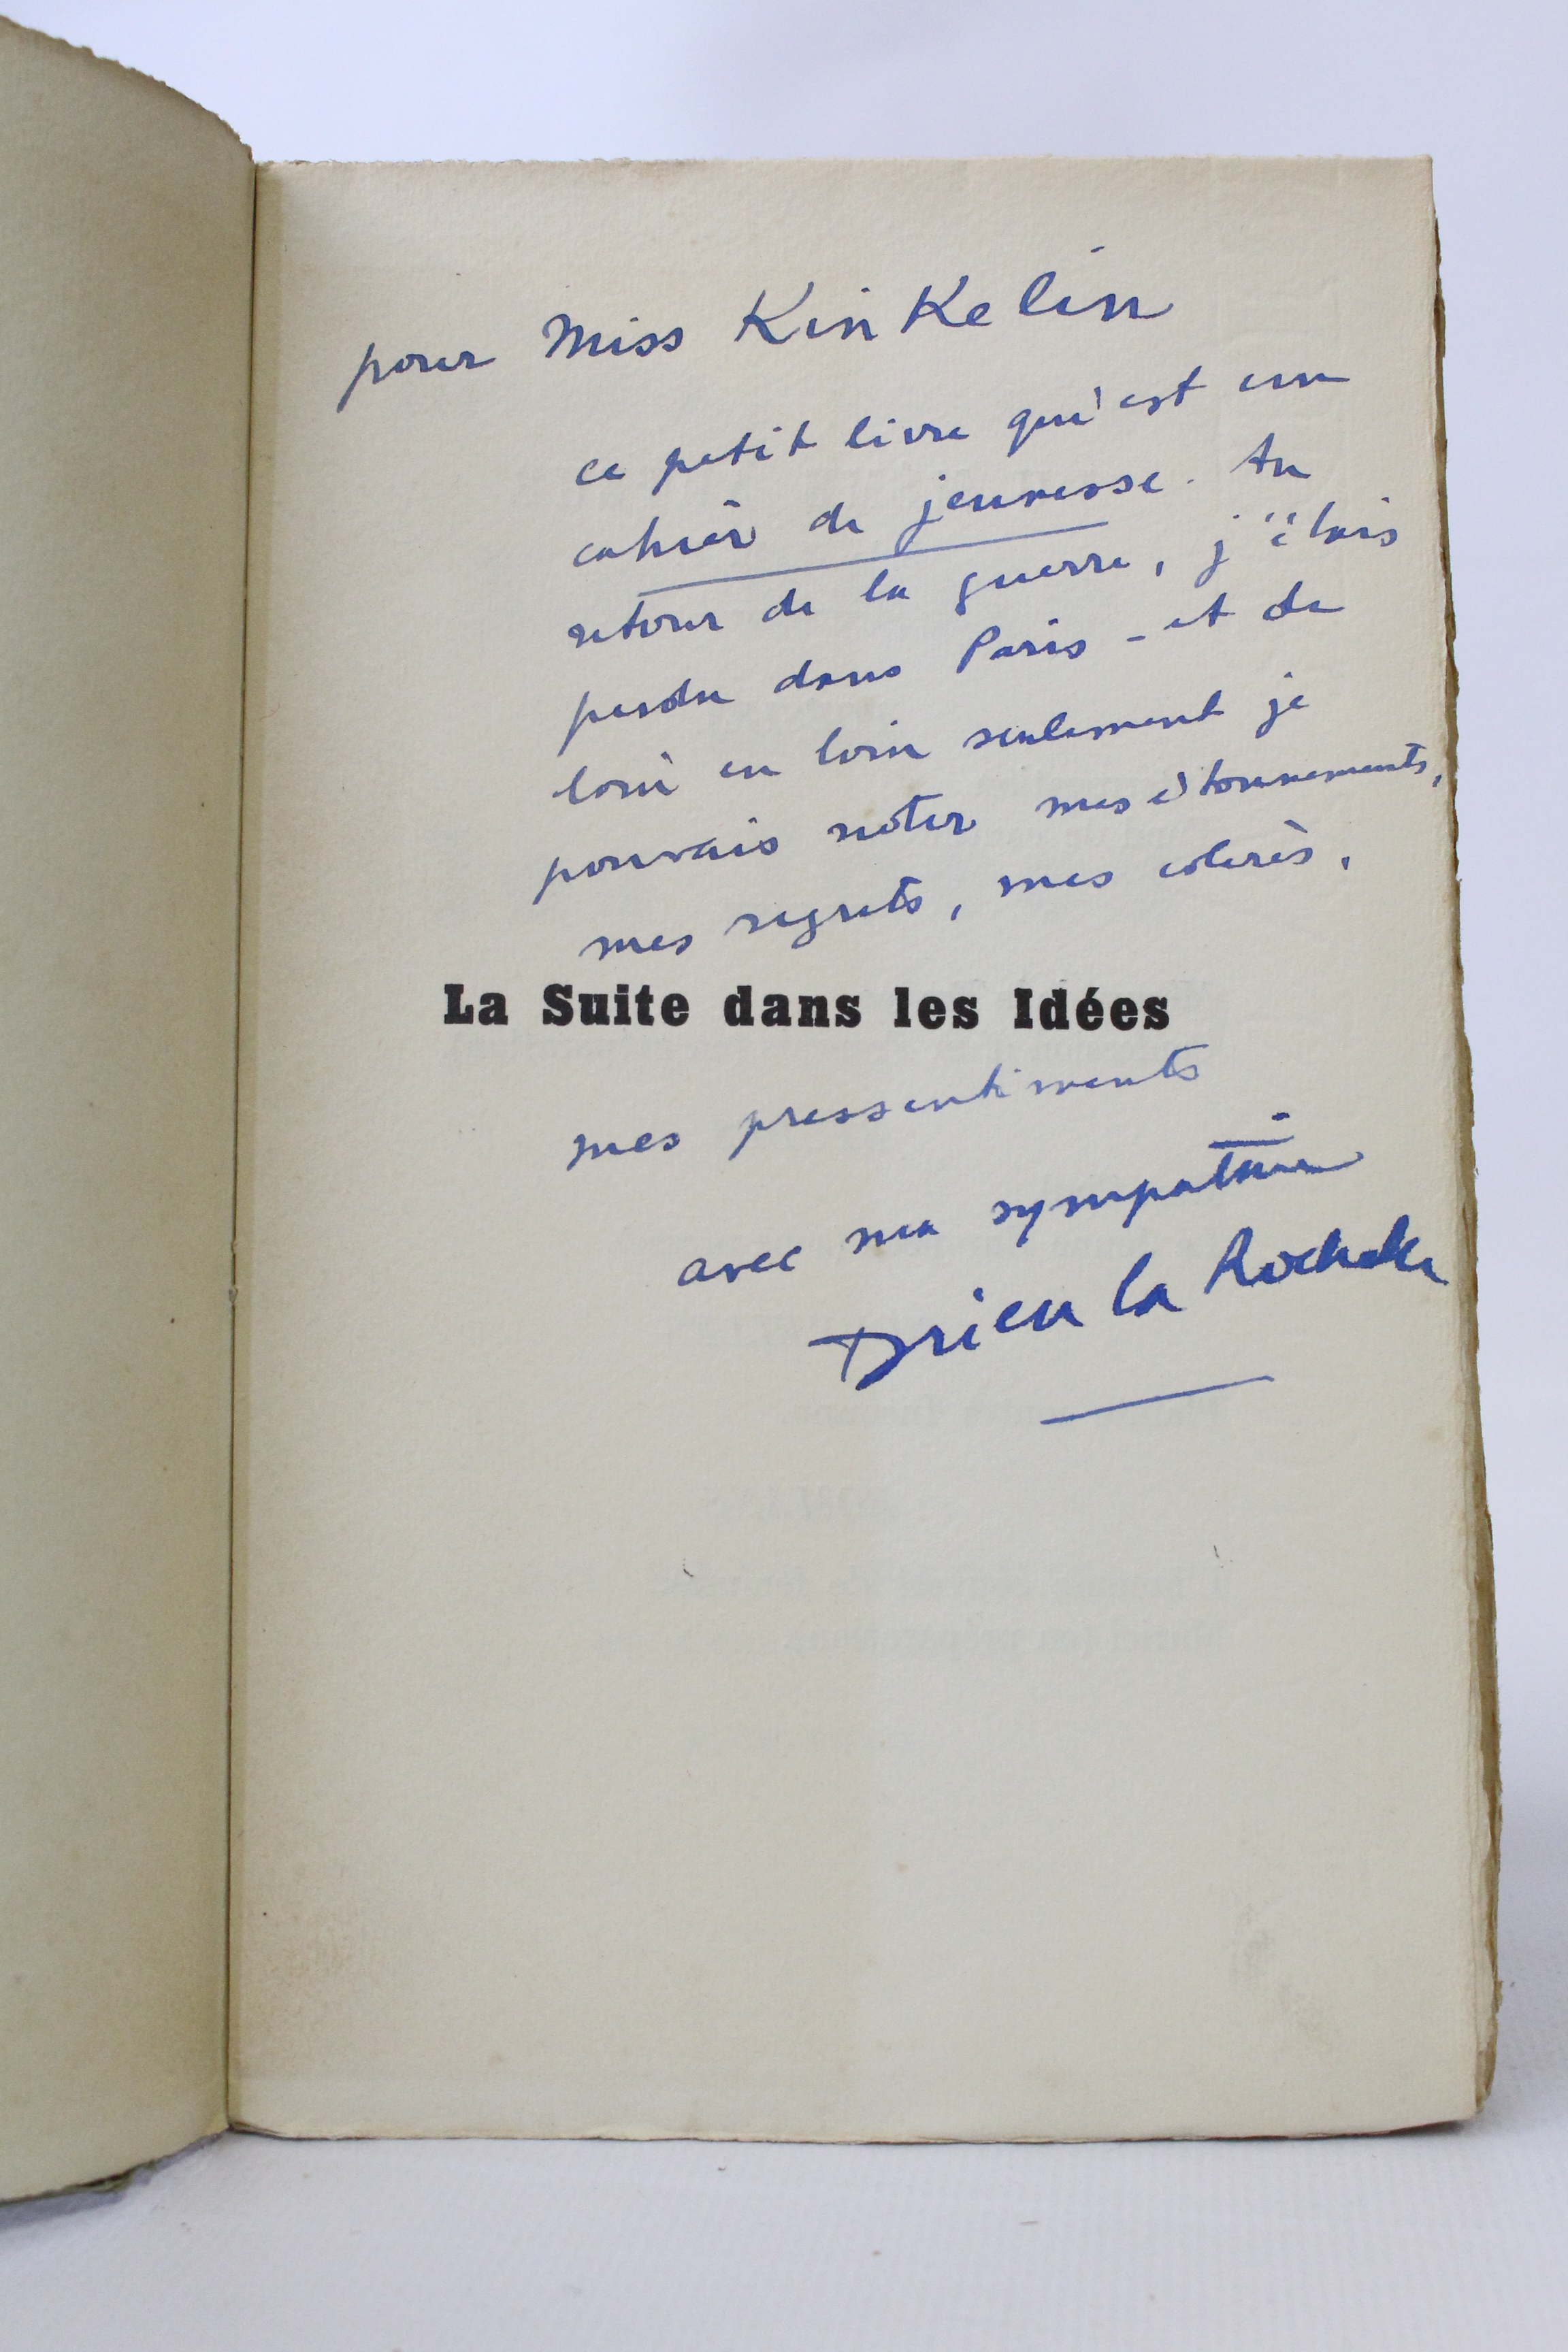 pour Miss Kinkelin
ce petit livre qui est un
cahier de jeunesse. Au
retour de la guerre, j'étais
perdu dans Paris - et de
loin en loin seulement je
pouvais noter mes étonnements,
mes regrets, mes colères,
La Suite dans les Idées
mes pressentiments
avec ma sympathie
Drieu la Rochelle